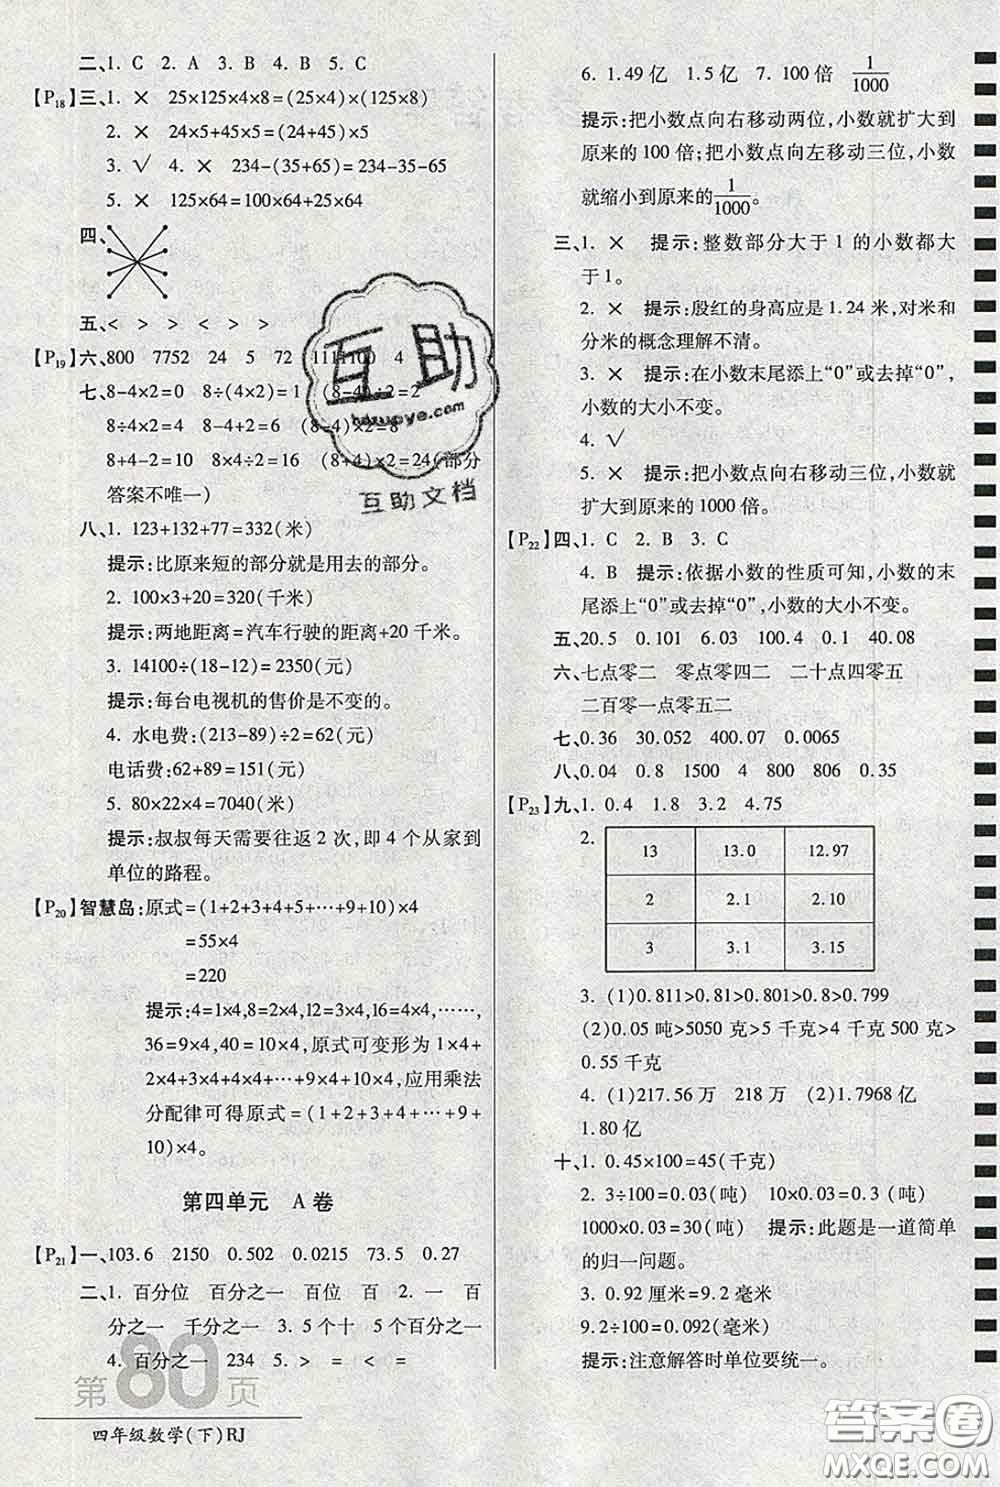 二、1. C 2. A 3. B 4. B 5. C
【P18】三、1. × 25×125×4×8=(25×4)×(125×8)
2. × 24×5+45×5=(24+45)×5
3. √ 4. × 234-(35+65)=234-35-65
5. × 125×64=100×64+25×64
四、
五、< > > < > >
【P19】六、800 7752 24 5 72 111 100 4
七、8-4×2=0 8÷(4×2)=1 (8-4)÷2=2
8÷4×2=4 8-4÷2=6 (8-4)×2=8
8+4-2=10 8×4÷2=16 (8+4)×2=24(部分
答案不唯一)
八、1. 123+132+77=332(米)
提示:比原来短的部分就是用去的部分。
2. 100×3+20=320(千米)
提示:两地距离=汽车行驶的距离+20 千米。
3. 14100÷(18-12)=2350(元)
提示:每台电视机的售价是不变的。
4. 水电费:(213-89)÷2=62(元)
电话费:62+89=151(元)
5. 80×22×4=7040(米)
提示:叔叔每天需要往返 2 次,即 4 个从家到
单位的路程。
【P20】智慧岛:原式=(1+2+3+4+5+…+9+10)×4
=55×4
=220
提示:4=1×4,8=2×4,12=3×4,16=4×4,……,
36=9×4,40=10×4,原式可变形为 1×4+
2×4+3×4+4×4+…+10×4,应用乘法
分配律可得原式=(1+2+3+4+…+9+
10)×4。
第四单元 A 卷
【P21】一、103.6 2150 0.502 0.0215 73.5 0.27
二、1. 百分位 百分之一 百位 百 2. 一 百
分之一 千分之一 3. 5 个十 5 个百分之一
4. 百分之一 234 5. > = < =
第80页
四年级数学(下)RJ
6. 1.49 亿 1.5 亿 7. 100 倍 1/1000
提示:把小数点向右移动两位,小数就扩大到
原来的 100 倍;把小数点向左移动三位,小数
就缩小到原来的1/1000。
三、1. × 提示:整数部分大于 1 的小数都大
于 1。
2. × 提示:殷红的身高应是 1.24 米,对米和
分米的概念理解不清。
3. × 提示:在小数末尾添上“0”或去掉“0”,
小数的大小不变。
4. √
5. × 提示:把小数点向右移动三位,小数就
扩大到原来的 1000 倍。
【P22】四、1. C 2. B 3. C
4. B 提示:依据小数的性质可知,小数的末
尾添上“0”或去掉“0”,小数的大小不变。
五、20.5 0.101 6.03 100.4 0.1 40.08
六、七点零二 零点零四二 二十点四零五
二百零一点零五二
七、0.36 30.052 400.07 0.0065
八、0.04 0.8 1500 4 800 806 0.35
【P23】九、1. 0.4 1.8 3.2 4.75
2.
13 13.0 12.97
2 2.1 2.10
3 3.1 3.15
3. (1)0.811>0.81>0.801>0.8>0.799
(2)0.05 吨>5050 克>5 千克>4 千克 500 克>
0.55 千克
4. (1)217.56 万 218 万 (2)1.7968 亿
1.80 亿
十、1. 0.45×100=45(千克)
2. 3÷100=0.03(吨) 10×0.03=0.3(吨)
1000×0.03=30(吨) 提示:此题是一道简单
的归一问题。
3. 0.92 厘米=9.2 毫米
9.2÷100=0.092(毫米)
提示:注意解答时单位要统一。
互助
hdzuoye.com
互助文档
答案圈
MXQE.COM